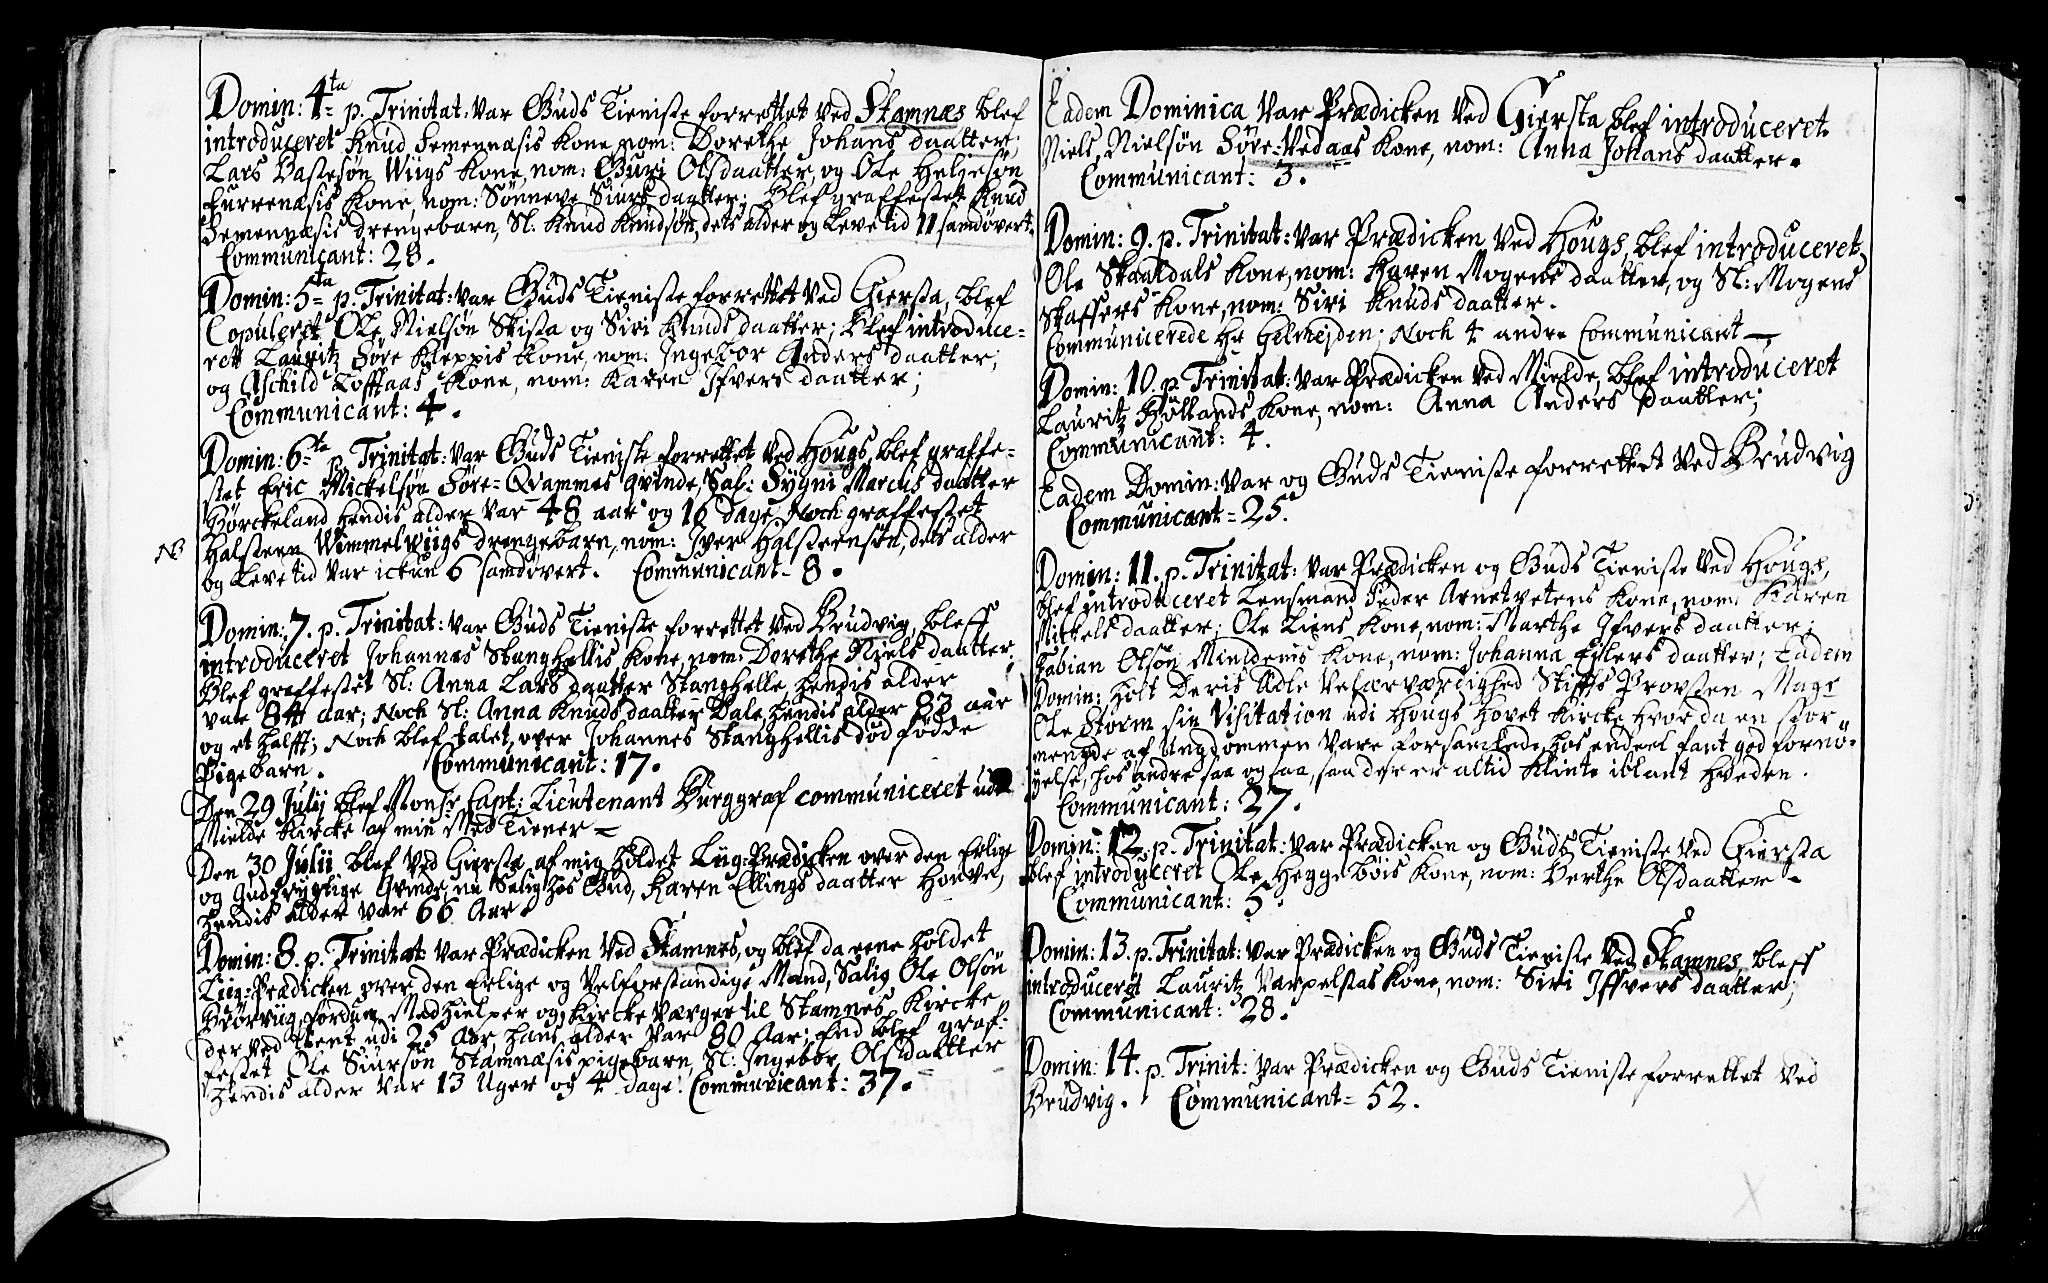 Domin: 4ta p. Trinitat: var Guds Tieniste forrettet ved Stamnæs blef
introduceret Knud Semennæsis Kone, nom: Dorethe Johans daatter;
Lars Bastesøn Wiigs Kone, nom: Guri Olsdaatter, og Ole Helgesøn
Furrenæsis Kone, nom: Sønneve Siurs daatter; Blef graffestet Knud
Semennæsis drengebarn, Sl: Knud Knudsøn, dets alder og Levetid 11 samdøvert.
Communicant: 28.
Domin: 5ta p. Trinitat: var Guds Tieniste forrettet ved Giersta, blef
Copuleret Ole Nielsøn Skista og Siri Knuds daatter; Blef introduce-
ret Lauritz Søre Kleppis Kone, nom: Ingebor Anders daatter,
og Aschild Toffaas Kone, nom: Karen Ifvers daatter;
Communicant: 4.
Domin: 6ta p. Trinitat: var Guds Tieniste forrettet ved Hougs, blef graffe-
stet Eric Mickelsøn Søre-Qvammes qvinde, Sal: Sygni Marcus daatter
Hørckeland hendis alder var 48 aar og 16 dage, Noch graffestet
NB Halsteen Wimmelwiigs drengebarn, nom: Iver Halsteensøn, dets alder
og Levetid var ickun 6 samdøvert. Communicant- 8.
Domin: 7. p. Trinitat: var Guds Tieniste forrettet ved Brudvig, bleff
introduceret Johannes Stanghellis Kone, nom: Dorethe Niels daatter,
Blef graffestet Sl: Anna Lars daatter Stanghelle hendis alder
vare 84 aar; Noch Sl: Anna Knuds daatter Dale, hendis alder 83 aar
og et halfft; Noch blef talet over Johannes Stanghellis død fødde
Pigebarn. Communicant: 17.
Den 29 Julii blef Monsr Capt: Lieutenant Burggraf communiceret udi
Mielde Kircke af min Med Tiener-
Den 30 Julii blef ved Giersta af mig holdet Liig-Prædicken over den Erlige
og Gudfrygtige Qvinde, nu Salig hos Gud, Karen Ellings daatter Houve,
hendis alder var 66 Aar.
Domin: 8. p. Trinitat: var Prædicken ved Stamnes, og blef da rene holdet
Liig-Prædicken over den Erlige og Velforstandige Mand, Salig Ole Olsøn
fordum Medhielper og Kircke Værger til Stamnes Kircke,
der ved tient udi 25 aar, hans alder var 80 Aar; End blef graf-
festet Ole Siursøn Stamnæsis pigebarn, Sl: Ingebor Olsdaatter
hendis alder var 13 Uger og 4 dage. Communicant: 37.
Eadem Dominica var Prædicken ved Giersta blef introduceret
Niels Nielsøn Søre-Vedaas Kone, nom: Anna Johans daatter.
Communicant: 3.
Domin: 9. p. Trinitat: var Prædicken ved Hougs, blef introduceret
Ole Skaaldals Kone, nom: Karen Mogens daatter, og Sl: Mogens
Skaffers Kone, nom: Siri Knuds daatter.
Communicerede Hr Gelmejden; Noch 4 andre Communicant-
Domin: 10. p. Trinitat: var Prædicken ved Mielde, blef introduceret
Lauritz Høllands Kone, nom: Anna Anders daatter;
Communicant: 4.
Eadem Domin: var og Guds Tieniste forrettet ved Brudvig
Communicant= 25.
Domin: 11. p. Trinitat: var Prædicken og Guds Tieniste ved Hougs,
blef introduceret Lensmand Peder Arnetvetens Kone, nom: Karen
Mickels daatter; Ole Liens Kone, nom: Marthe Ifvers daatter;
Fabian Olsøn Mieldems Kone, nom: Johanna Eylers daatter; Eadem
Domin: holt Deris Ædle Velærværdighed Stiffts Provsten Magr
Ole Storm sin Visitation udi Hougs Hovet Kircke, hvor da en stor
mengde af Ungdommen vare forsamlede, hos endeel fant god fornø-
yelse, hos andre saa og saa, saa der er altid Klinte iblant hveden.
Communicant: 27.
Domin: 12. p. Trinitat: var Prædicken og Guds Tieniste ved Giersta
blef introduceret Ole Heggebøis Kone, nom: Berthe Olsdaatter-
Communicant: 5.
Domin: 13. p. Trinitat: var Prædicken og Guds Tieniste ved Stamnes, bleff
introduceret Lauritz Varpelstas Kone, nom: Siri Iffvers daatter;
Communicant: 28.
Domin: 14. p. Trinit: var Prædicken og Guds Tieniste forrettet ved
Brudvig. Communicant= 52.